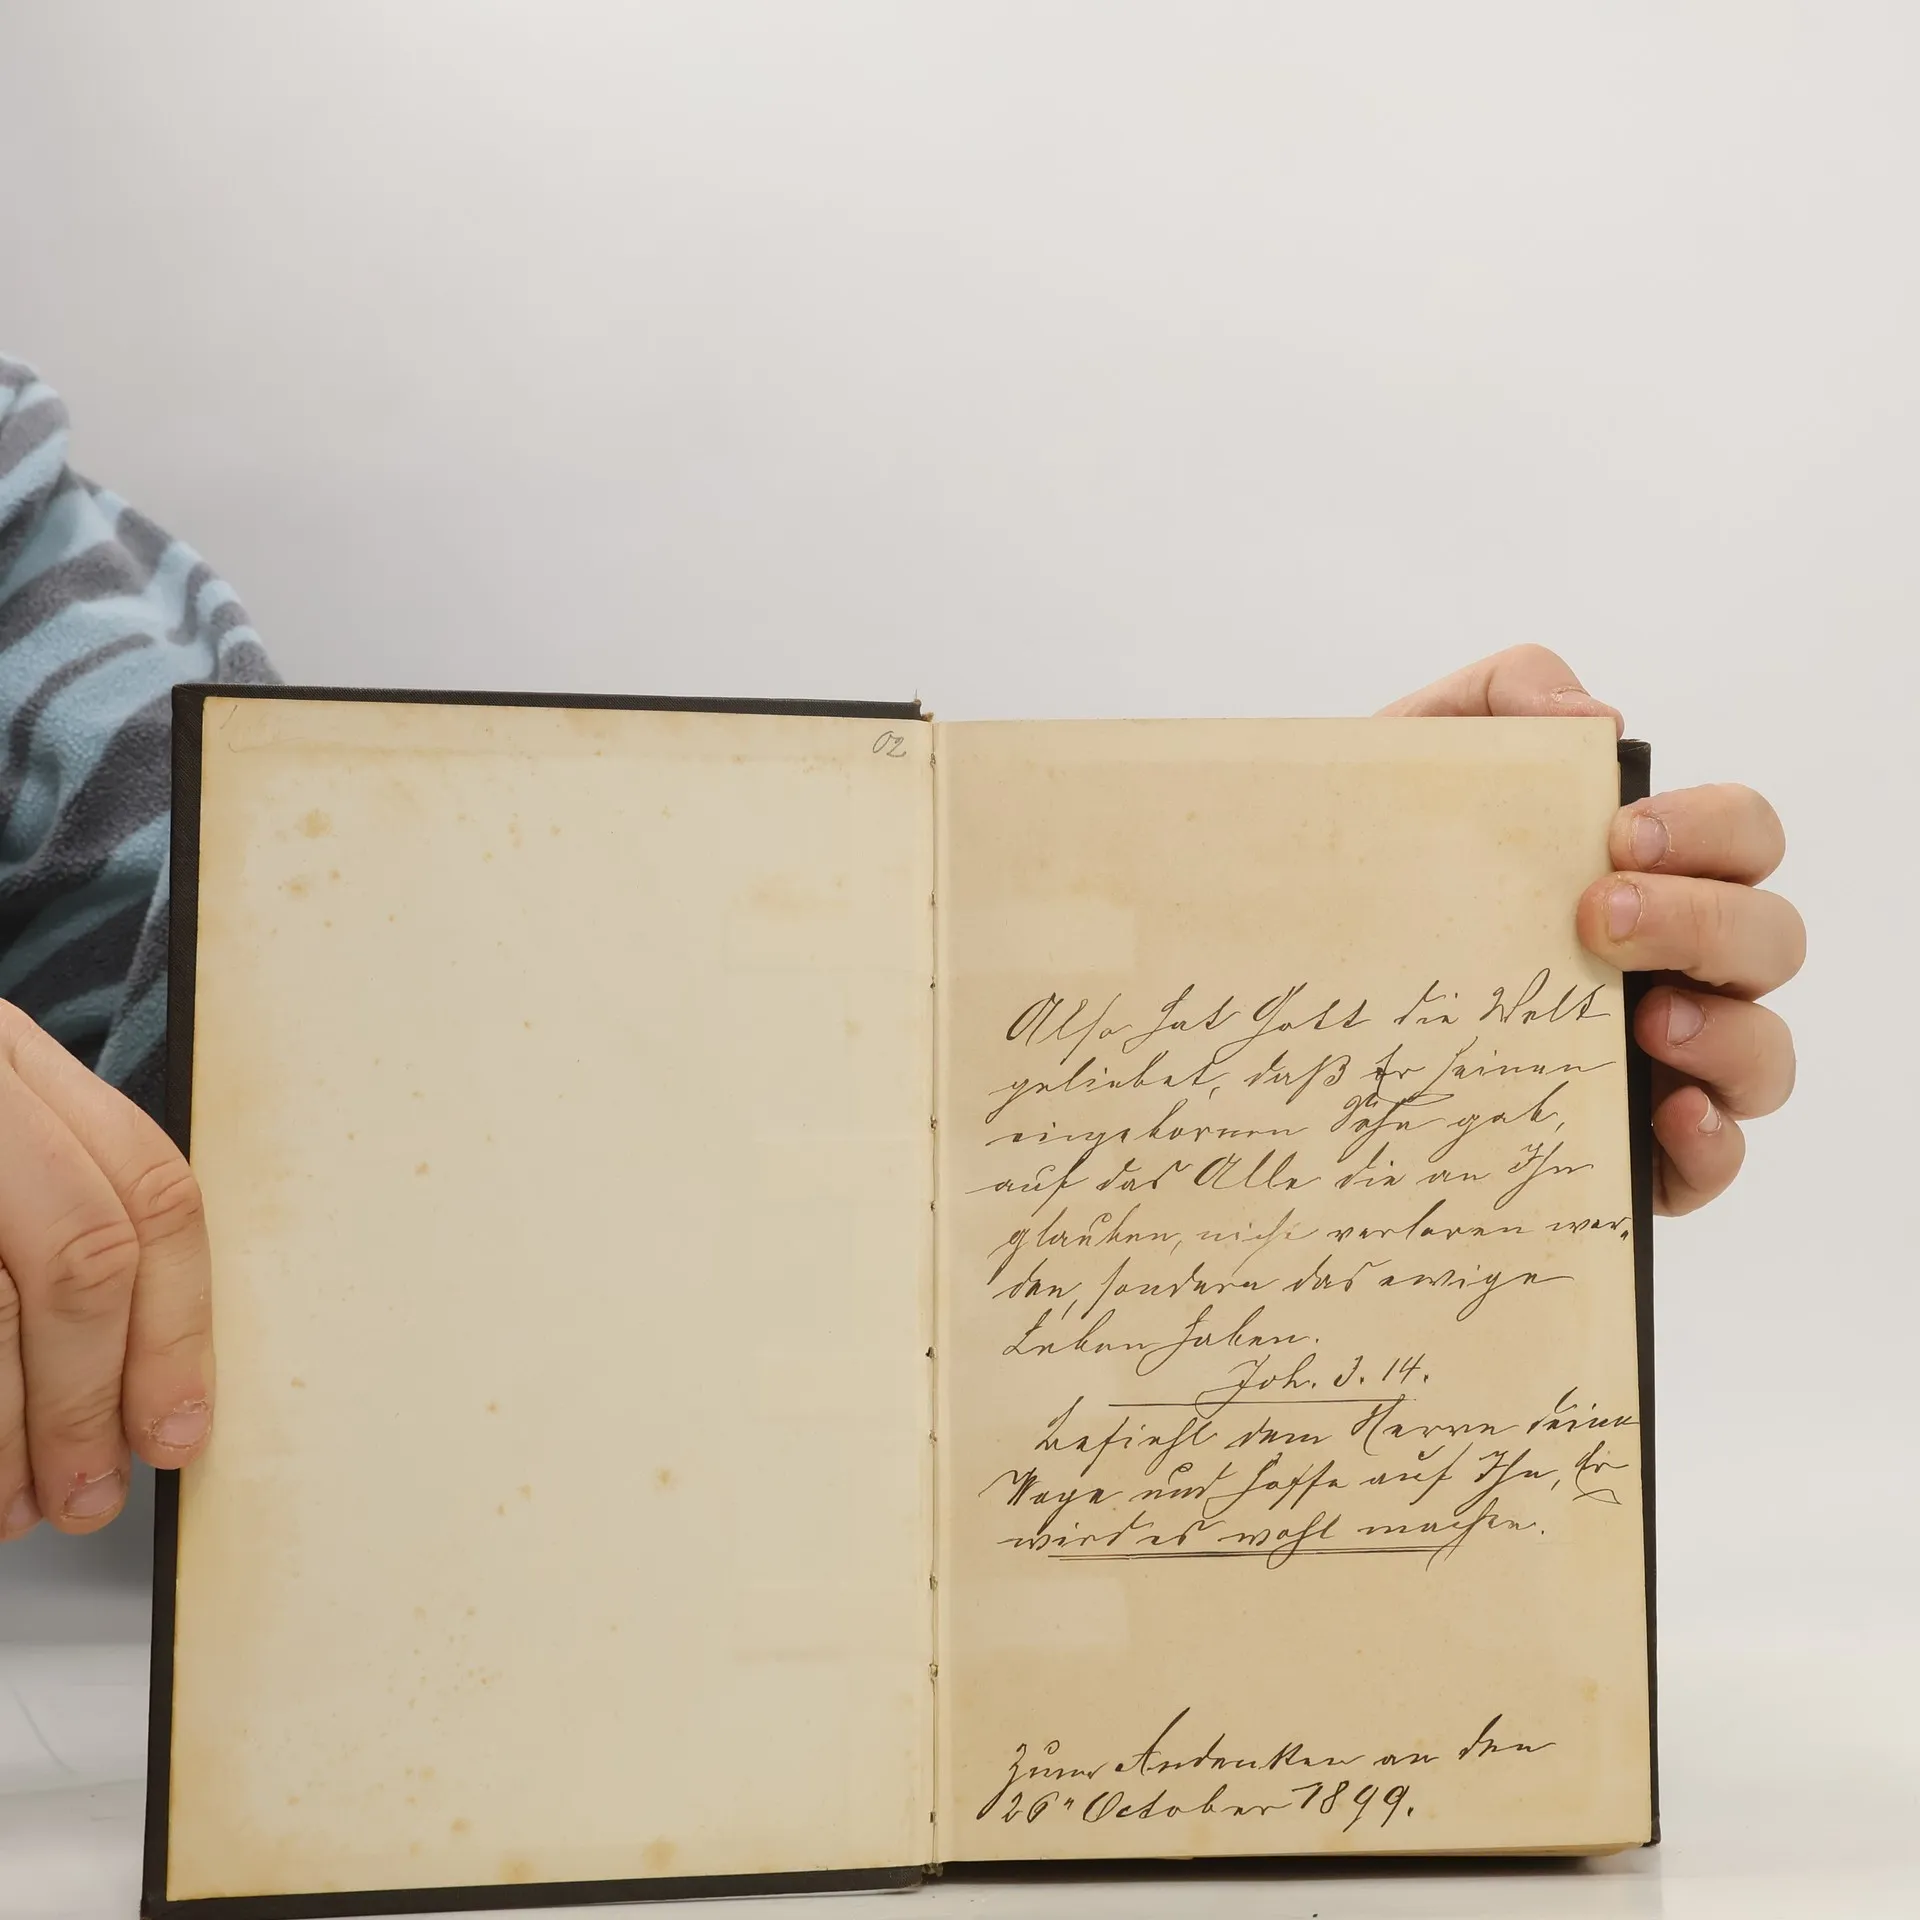 02
Also hat Gott die Welt
geliebet, daß Er seinen
eingebornen Sohn gab,
auf das Alle die an Ihn
glauben, nicht verloren wer-
den, sondern das ewige
Leben haben.
Joh. 3. 14.
Befiehl dem Herrn deine
Wege und hoffe auf Ihn, Er
wird es wohl machen.
Zum Andenken an den
26" October 1899.